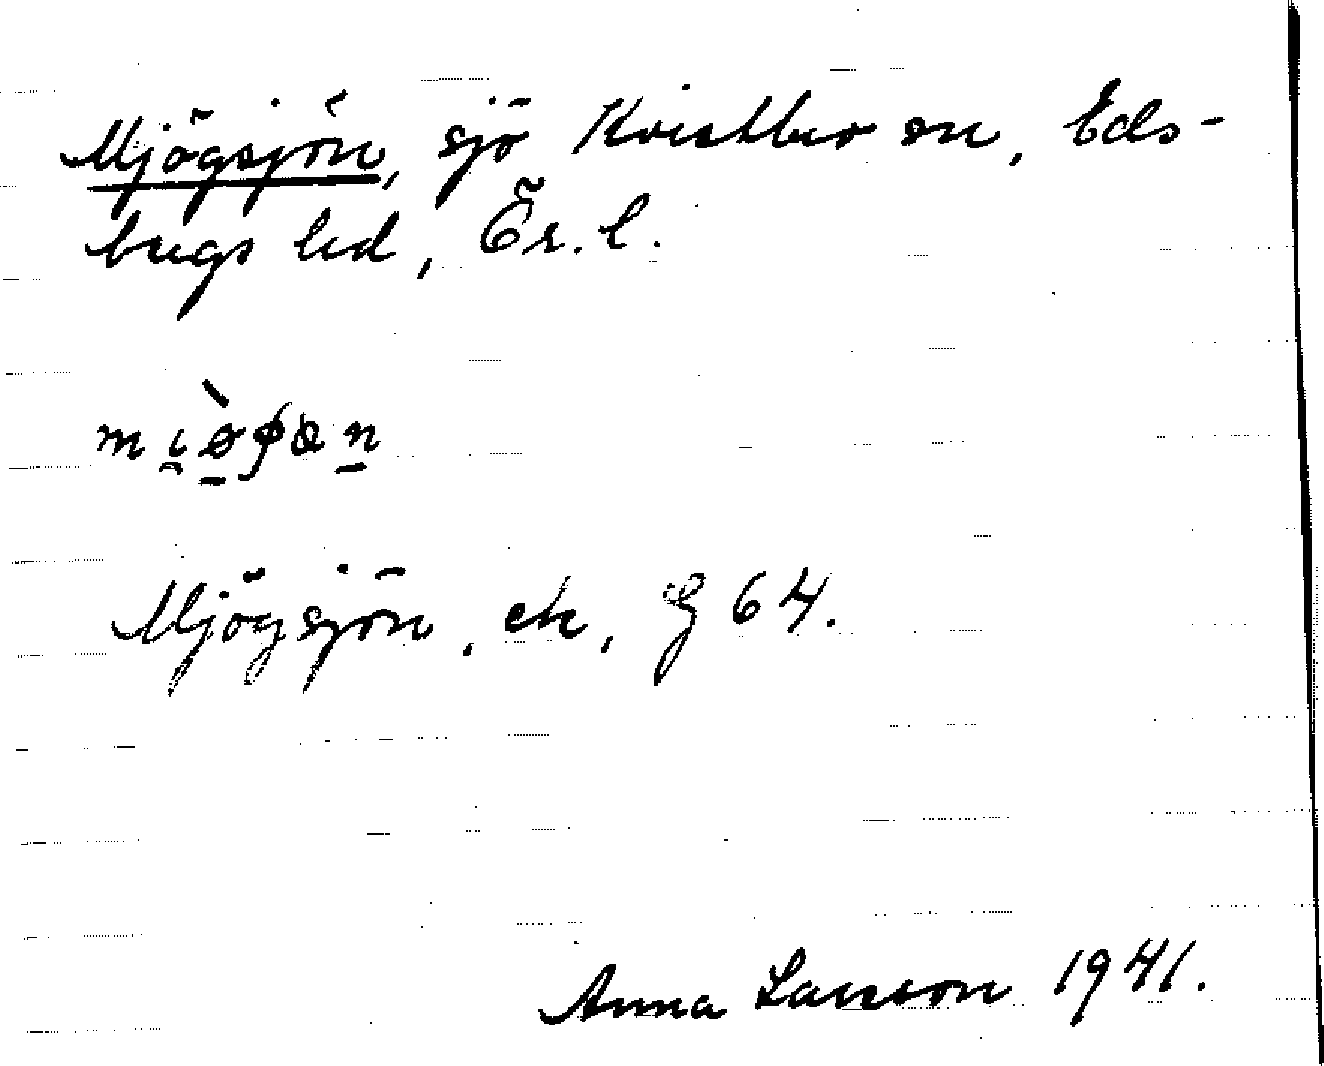 Mjögsjön, sjö Kvistbro sn, Eds-
bergs hd, Ör. l.
Mjögsjön, ek, G 64.
Anna Larsson 1941.